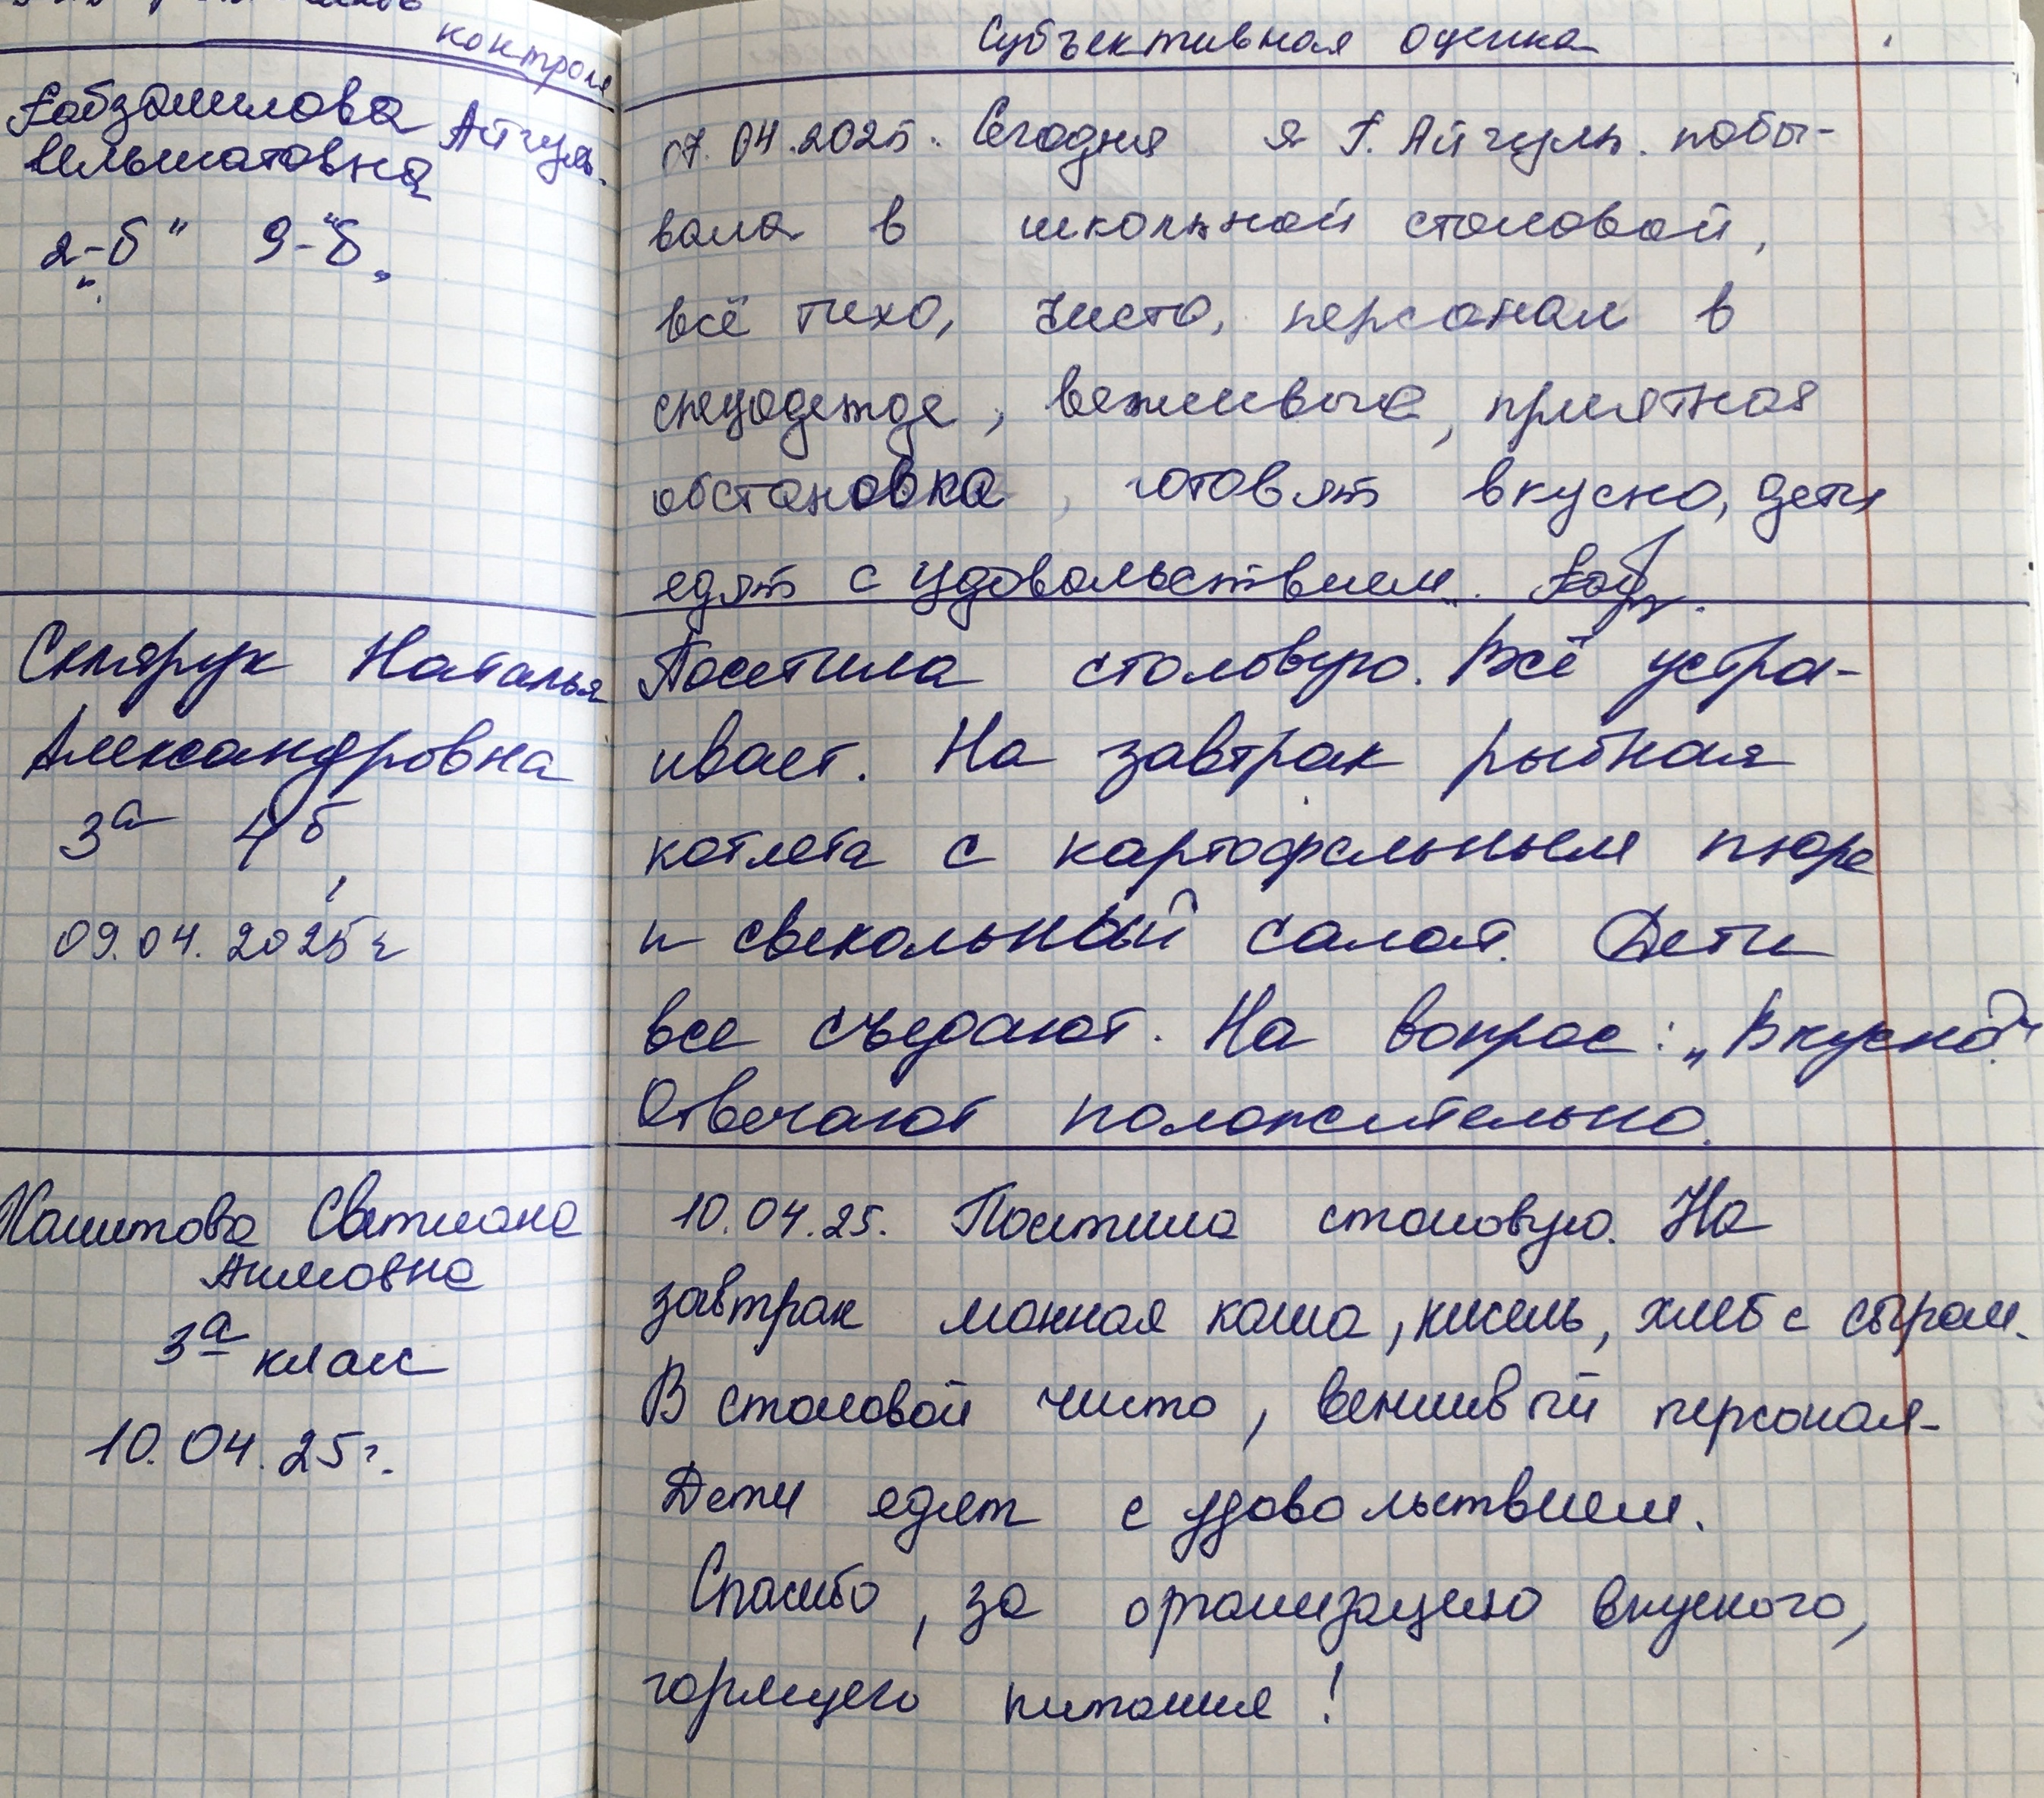 контроля
Габзалилова Айгуль
Ильшатовна
2-"б" 9-"б"
Склярук Наталья
Александровна
3а 4б
09.04.2025г
Хамитова Светлана
Акимовна
3а класс
10.04.25г.
Субъективная оценка
07.04.2025. Сегодня я Г. Айгуль. побы-
вала в школьной столовой,
всё тихо, чисто, персонал в
спецодежде, вежливые, приятная
обстановка, готовят вкусно, дети
едят с удовольствием. Габз.
Посетила столовую. Всё устра-
ивает. На завтрак рыбная
котлета с картофельным пюре
и свекольный салат. Дети
все съедают. На вопрос: „Вкусно?"
Отвечают положительно.
10.04.25. Посетила столовую. На
завтрак манная каша, кисель, хлеб с сыром.
В столовой чисто, вежливый персонал.
Дети едят с удовольствием.
Спасибо, за организацию вкусного,
горящего питания!